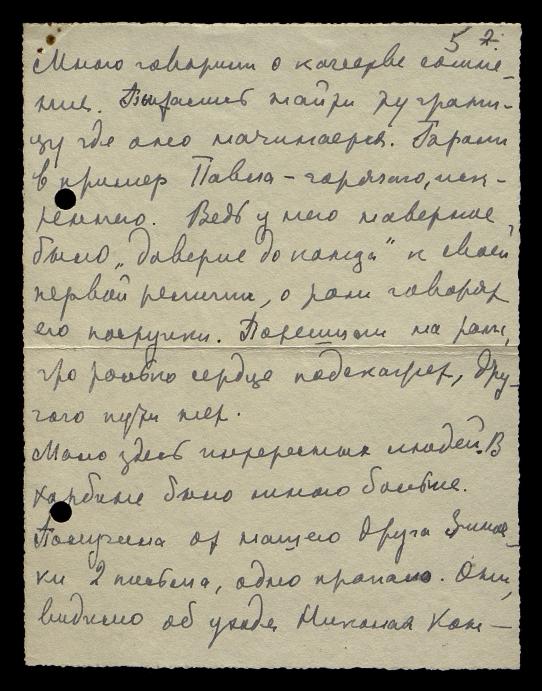 5 2.
Много говорили о качестве сомне-
ния. Пытались найти ту грани-
цу где оно начинается. Брали
в пример Павла – горячего, иск-
реннего. Ведь у него наверное
было „доверие до конца“ к своей
первой религии, о том говорят
его поступки. Порешили на том,
что только сердце подскажет, дру-
гого пути нет.
Мало здесь интересных людей. В
Харбине было много больше.
Получила от нашего друга Зиноч-
ки 2 письма, одно пропало. Они,
видимо об уходе Николая Кон-